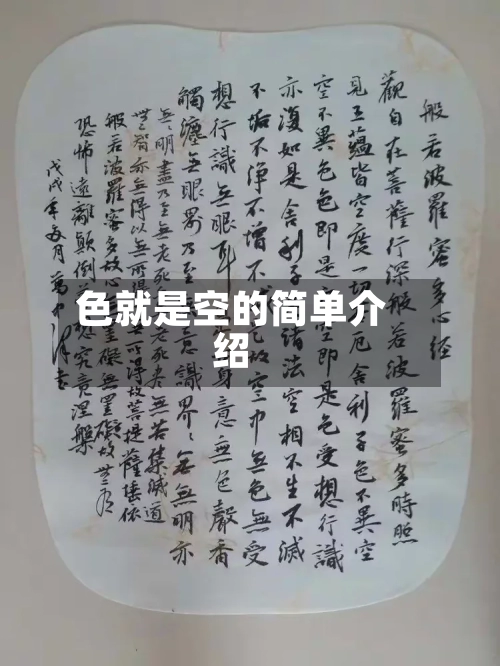 色就是空的简单介
绍
般若波羅蜜多心經
觀自在菩薩行深般若波羅蜜多時照
見五蘊皆空度一切厄舍利子色不異空
空不異色色即是空即是色受想行識
亦復如是舍利子諸法空相不生不滅
不垢不淨不增不故空中無色無受
想行識無眼耳身意無色聲香
觸塵無眼界乃至意識界無無明亦
無無明盡乃至無老死老死盡無苦集滅道
無智亦無得以無所得故菩提薩埵依
般若波羅蜜多故心罣礙無罣礙故無有
恐怖遠離顛倒想究竟涅槃
戊戌年月